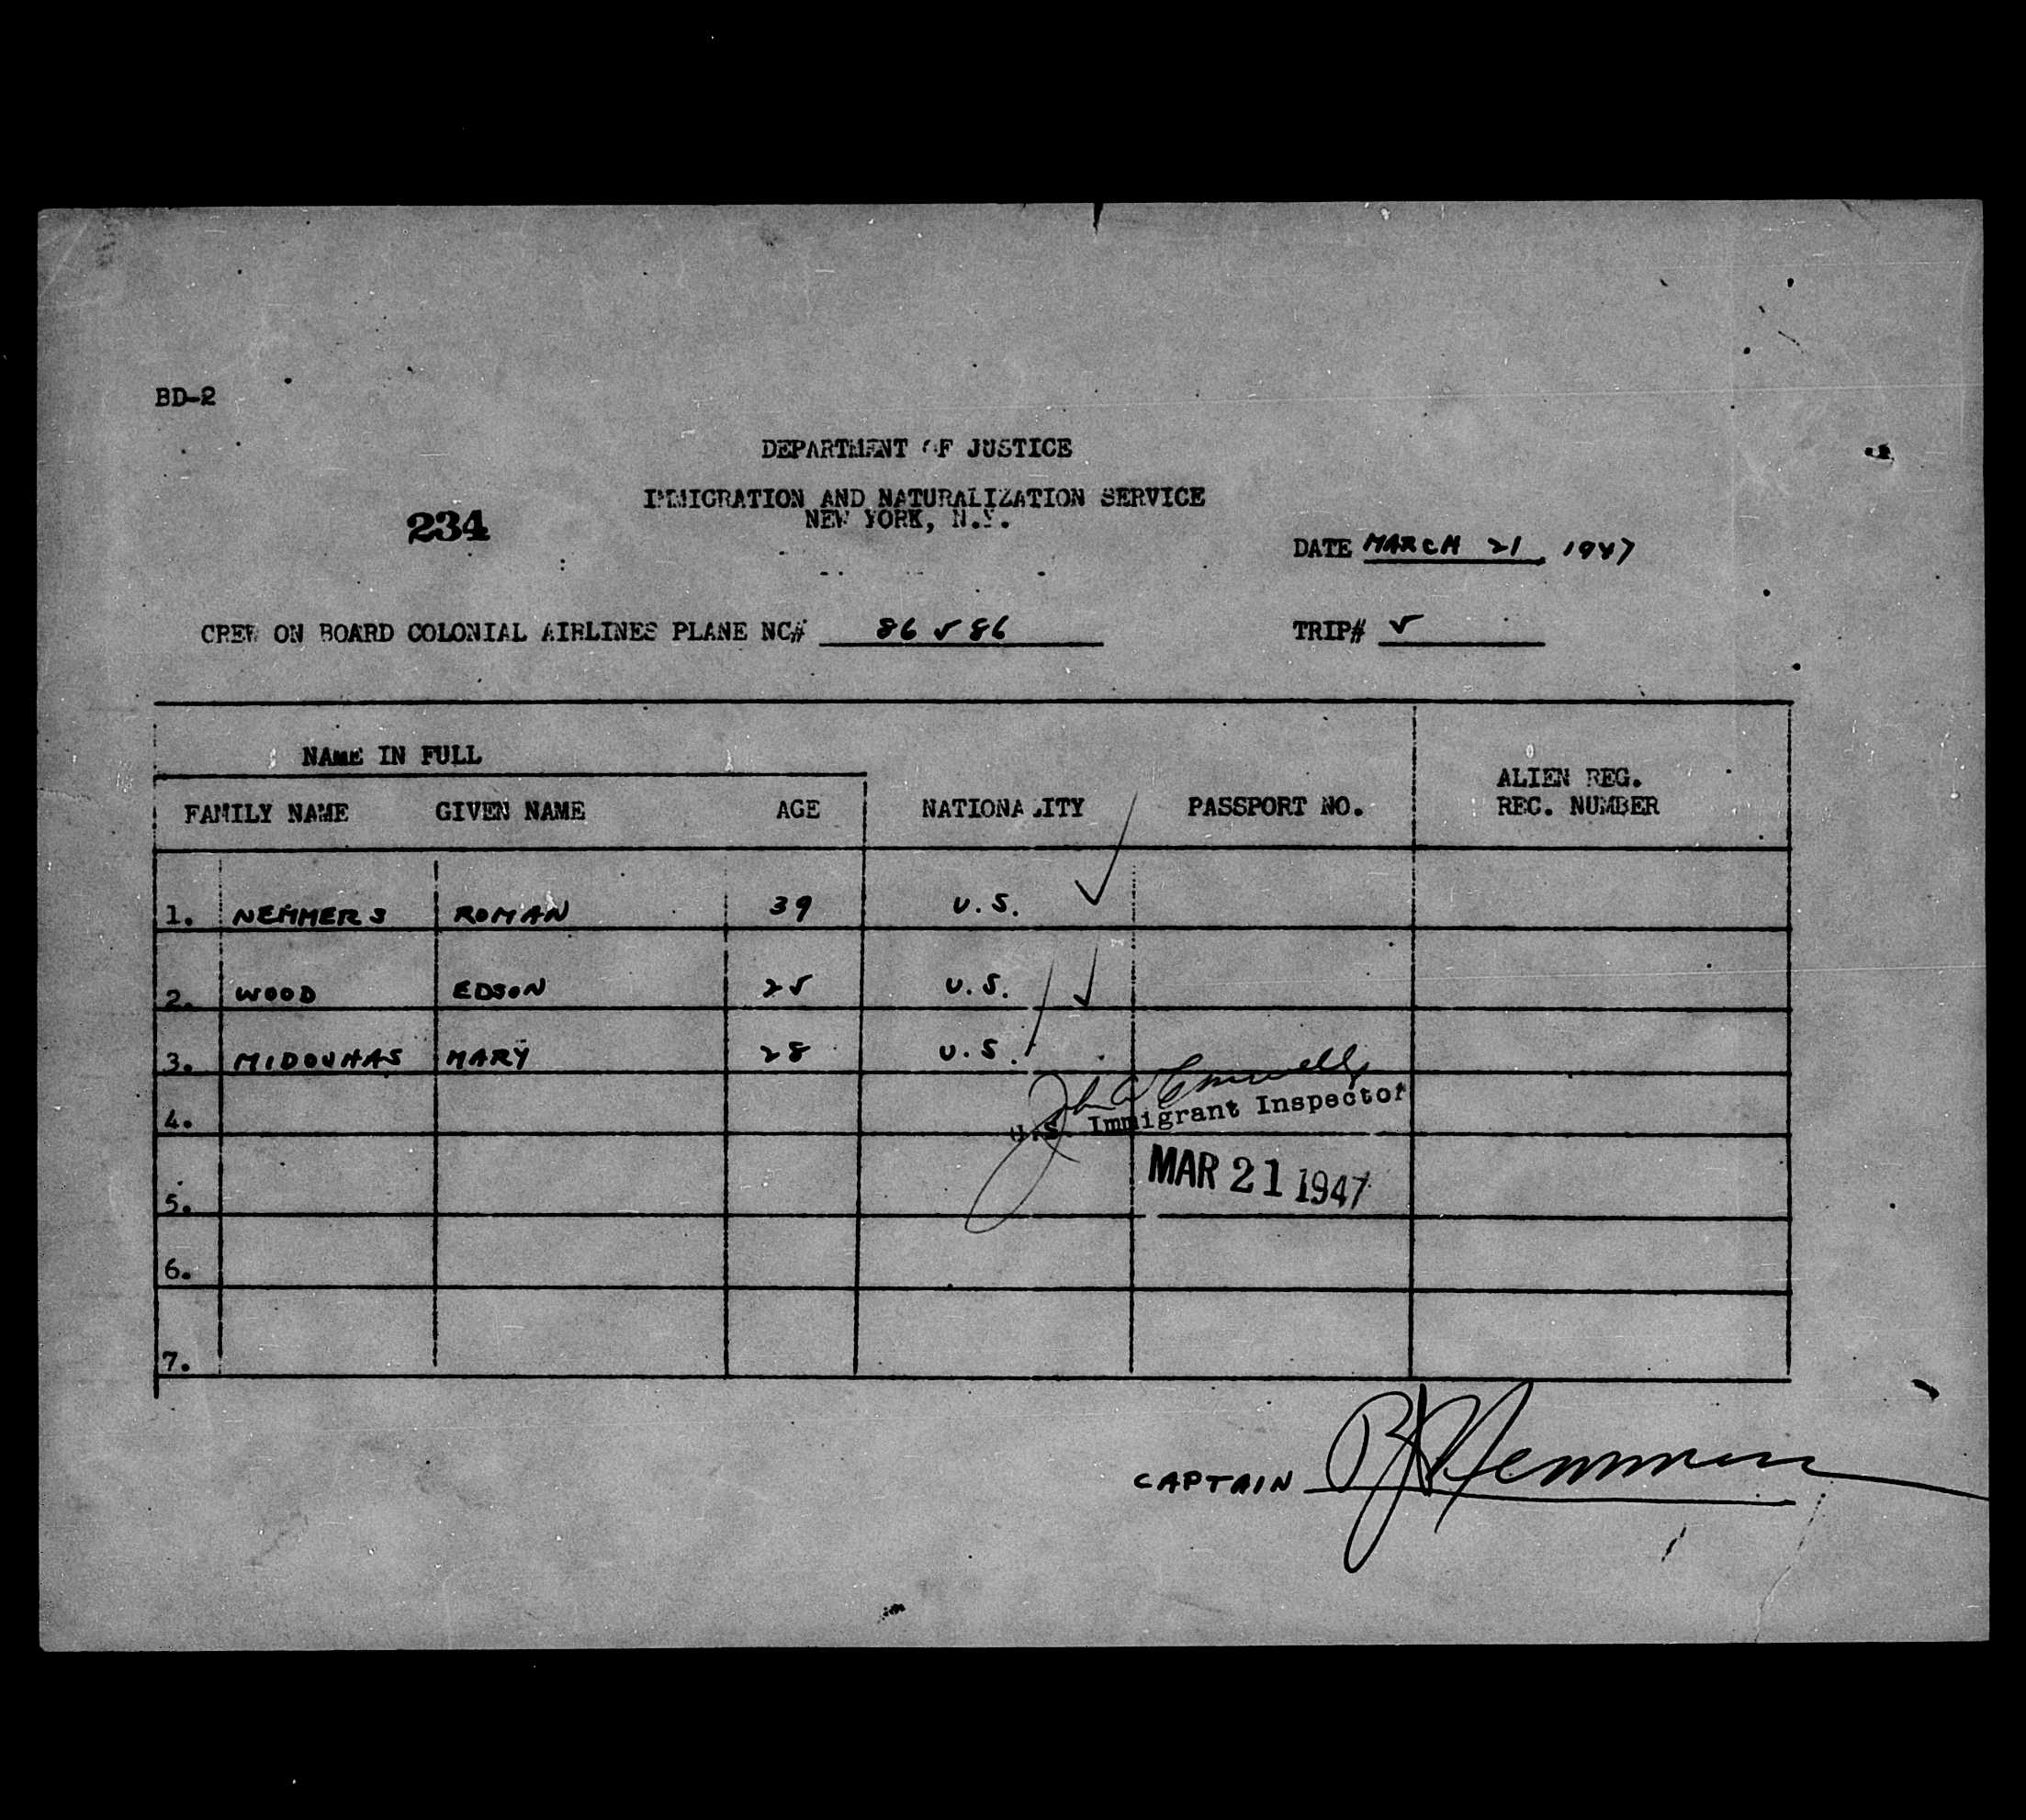 BD-2
DEPARTMENT OF JUSTICE
IMMIGRATION AND NATURALIZATION SERVICE
234
NEW YORK, N.Y.
DATE MARCH 21, 1947
CREW ON BOARD COLONIAL AIRLINES PLANE NC# 86586
TRIP# 5
NAME IN FULL
ALIEN REG.
FAMILY NAME GIVEN NAME AGE NATIONALITY PASSPORT NO. REC. NUMBER
1. NEMMERS ROMAN 39 U.S.
2. WOOD EDSON 25 U.S.
3. MIDOUHAS MARY 28 U.S.
U.S. Immigrant Inspector
4.
MAR 21 1947
5.
6.
7.
CAPTAIN